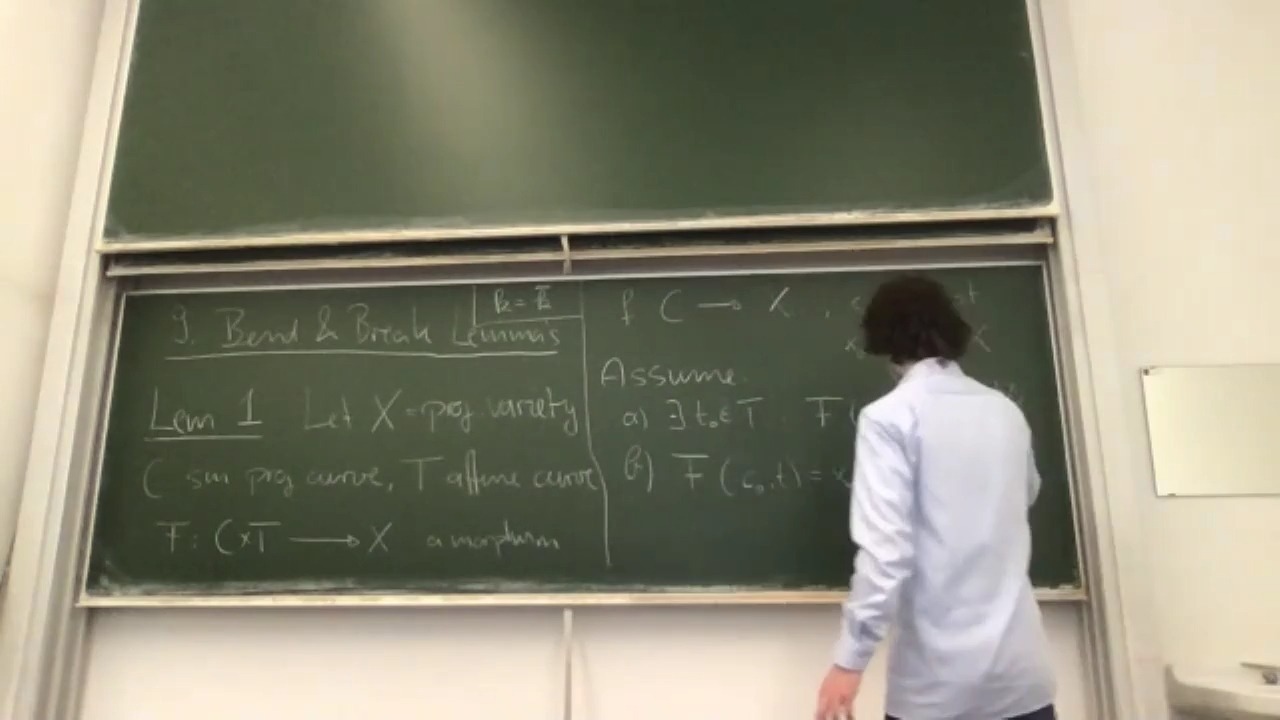 9. Bend & Break Lemmas
k = k̄
Lem 1 Let X = proj. variety
C sm proj curve, T affine curve
F: C×T ⟶ X a morphism
f C ⟶ X
Assume:
a) ∃ t₀ ∈ T : F (
b) F (c₀, t) = x